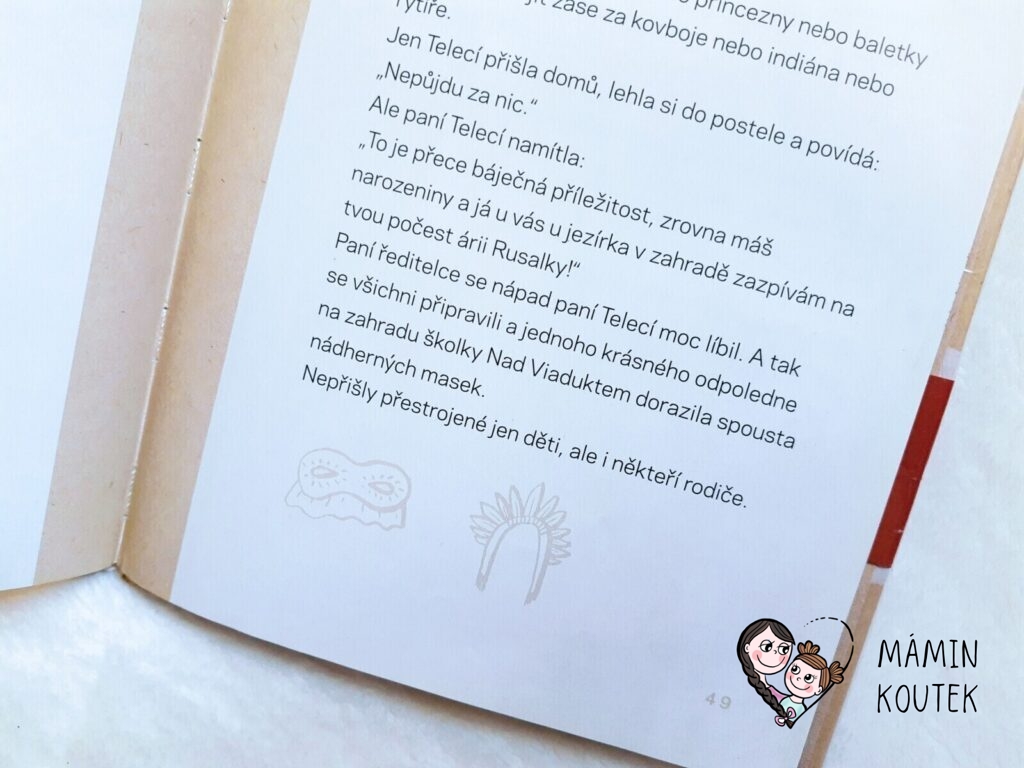 princezny nebo baletky
zase za kovboje nebo indiána nebo
rytíře.
Jen Telecí přišla domů, lehla si do postele a povídá:
„Nepůjdu za nic.“
Ale paní Telecí namítla:
„To je přece báječná příležitost, zrovna máš
narozeniny a já u vás u jezírka v zahradě zazpívám na
tvou počest árii Rusalky!“
Paní ředitelce se nápad paní Telecí moc líbil. A tak
se všichni připravili a jednoho krásného odpoledne
na zahradu školky Nad Viaduktem dorazila spousta
nádherných masek.
Nepřišly přestrojené jen děti, ale i někteří rodiče.
49
MÁMIN
KOUTEK